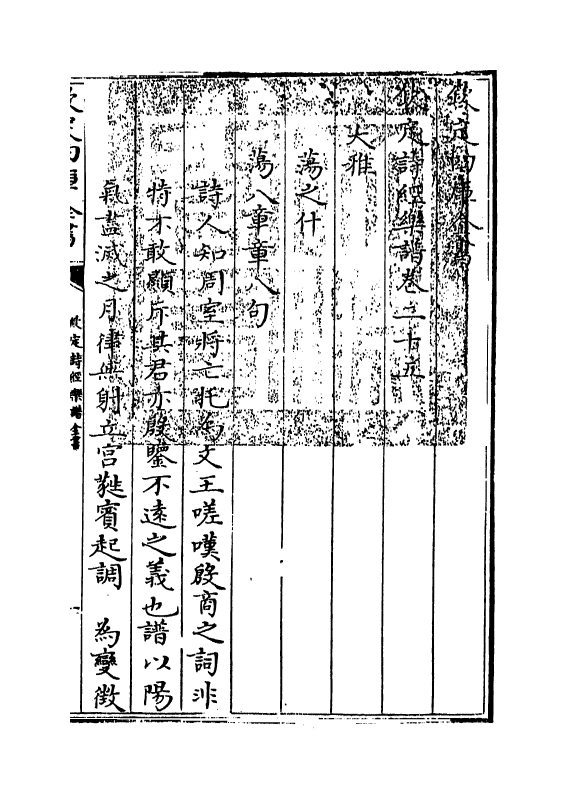 欽定四庫全書
欽定詩經樂譜卷二十五
大雅
蕩之什
蕩八章章八句
詩人知周室將亡托為文王嗟嘆殷商之詞非
特才敢顯斥其君亦殷鑒不遠之義也譜以陽
氣盡滅之月律無射立宮蕤賓起調 為變徴
欽定四庫全書
欽定詩經樂譜全書